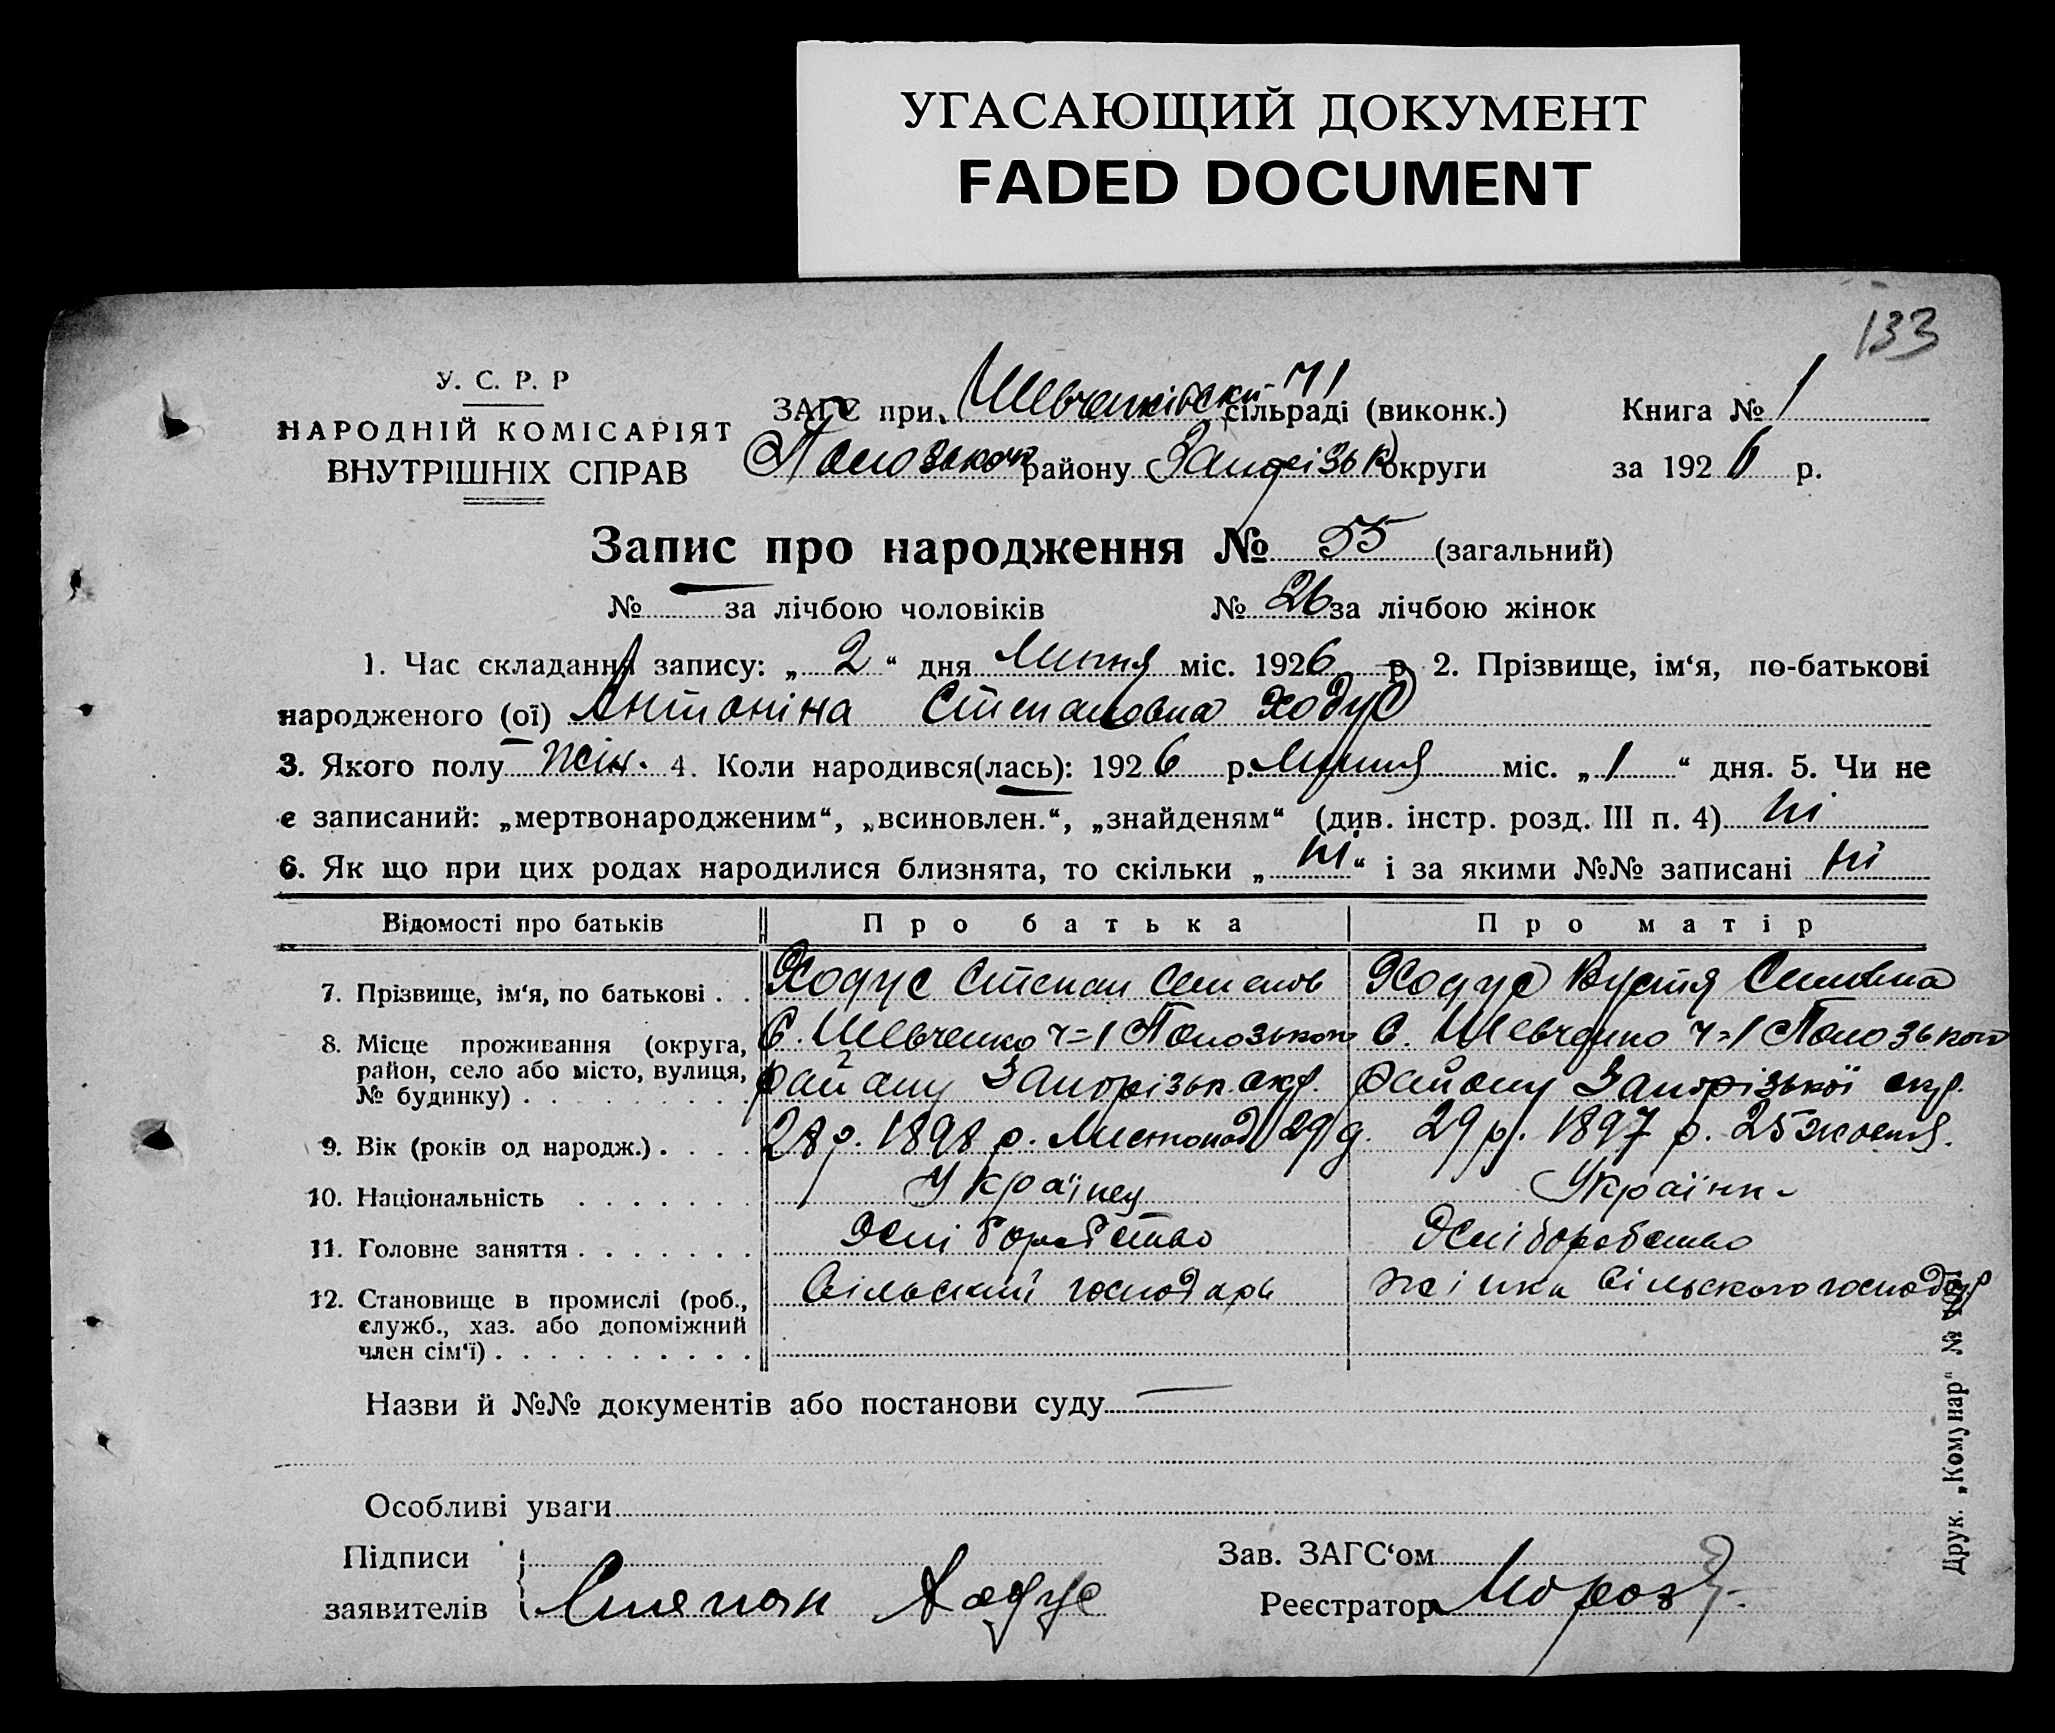 УГАСАЮЩИЙ ДОКУМЕНТ
FADED DOCUMENT
133
У. С. Р. Р
НАРОДНІЙ КОМІСАРІЯТ
ВНУТРІШНІХ СПРАВ
ЗАГС при Шевченківській ч1 сільраді (виконк.) Книга № 1
району Запорізьк округи за 1926 р.
Запис про народження № 55 (загальний)
№ — за лічбою чоловіків № 26 за лічбою жінок
1. Час складання запису: „ 2 “ дня Липня міс. 1926 р. 2. Прізвище, ім‘я, по-батькові
народженого (ої) Антоніна Степановна Ходус
3. Якого полу жін. 4. Коли народився(лась): 1926 р. Липня міс. „ 1 “ дня. 5. Чи не
є записаний: „мертвонародженим“, „всиновлен.“, „знайденям“ (див. інстр. розд. III п. 4) ні
6. Як що при цих родах народилися близнята, то скільки „ ні “ і за якими №№ записані ні
Відомості про батьків Про батька Про матір
7. Прізвище, ім‘я, по батькові . . Ходус Степан Семенов Ходус Вустя
8. Місце проживання (округа, С. Шевченко ч=1 С. Шевченко ч=1
район, село або місто, вулиця, району Запорізьк. окр. району Запорізької окр.
№ будинку) . . . . . . . .
9. Вік (років од народж.) . . . . 28 р. 1898 р. Листопад 29 д. 29 р. 1897 р. 25 жовтня.
10. Національність . . . . . . . Українец Українк-
11. Головне заняття . . . . . . . Хліборобство Хліборобство
12. Становище в промислі (роб., Сільський господарь жінка сільского господар
служб., хаз. або допоміжний
член сім‘ї) . . . . . . . . . .
Назви й №№ документів або постанови суду —
Особливі уваги
Підписи Зав. ЗАГС‘ом
заявителів Степан Ходус Реєстратор Мороз
Друк. „Комунар“ №